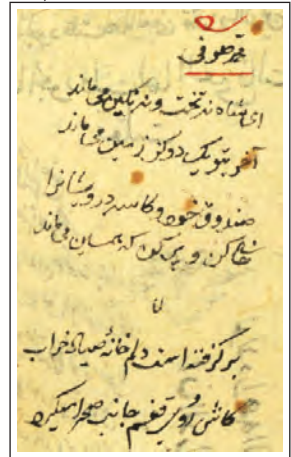 صوفی
ای شاه نه تخت و نه نگین می ماند
آخر بتو یک دو گز زمین می ماند
صندوق خود و کاسه درویشانرا
خالی کن و پر کن که می ماند
گرفته است دلم خانهٔ صیاد خراب
کاش روی قفسم جانب صحرا میکرد